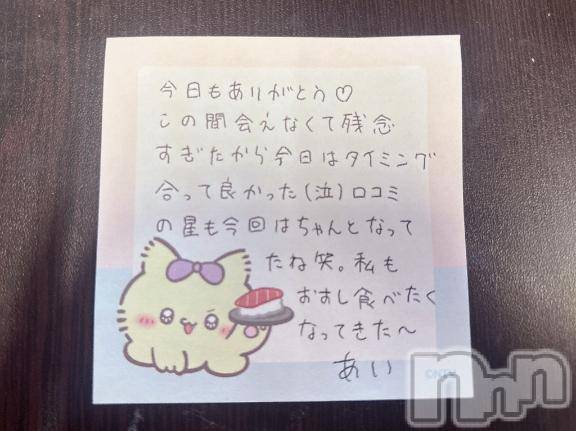 今日もありがとう♡
この間会えなくて残念
すぎたから今日はタイミング
合って良かった(泣)口コミ
の星も今回はちゃんとなって
たね笑。私も
おすし食べたく
なってきた〜
あい
nnn